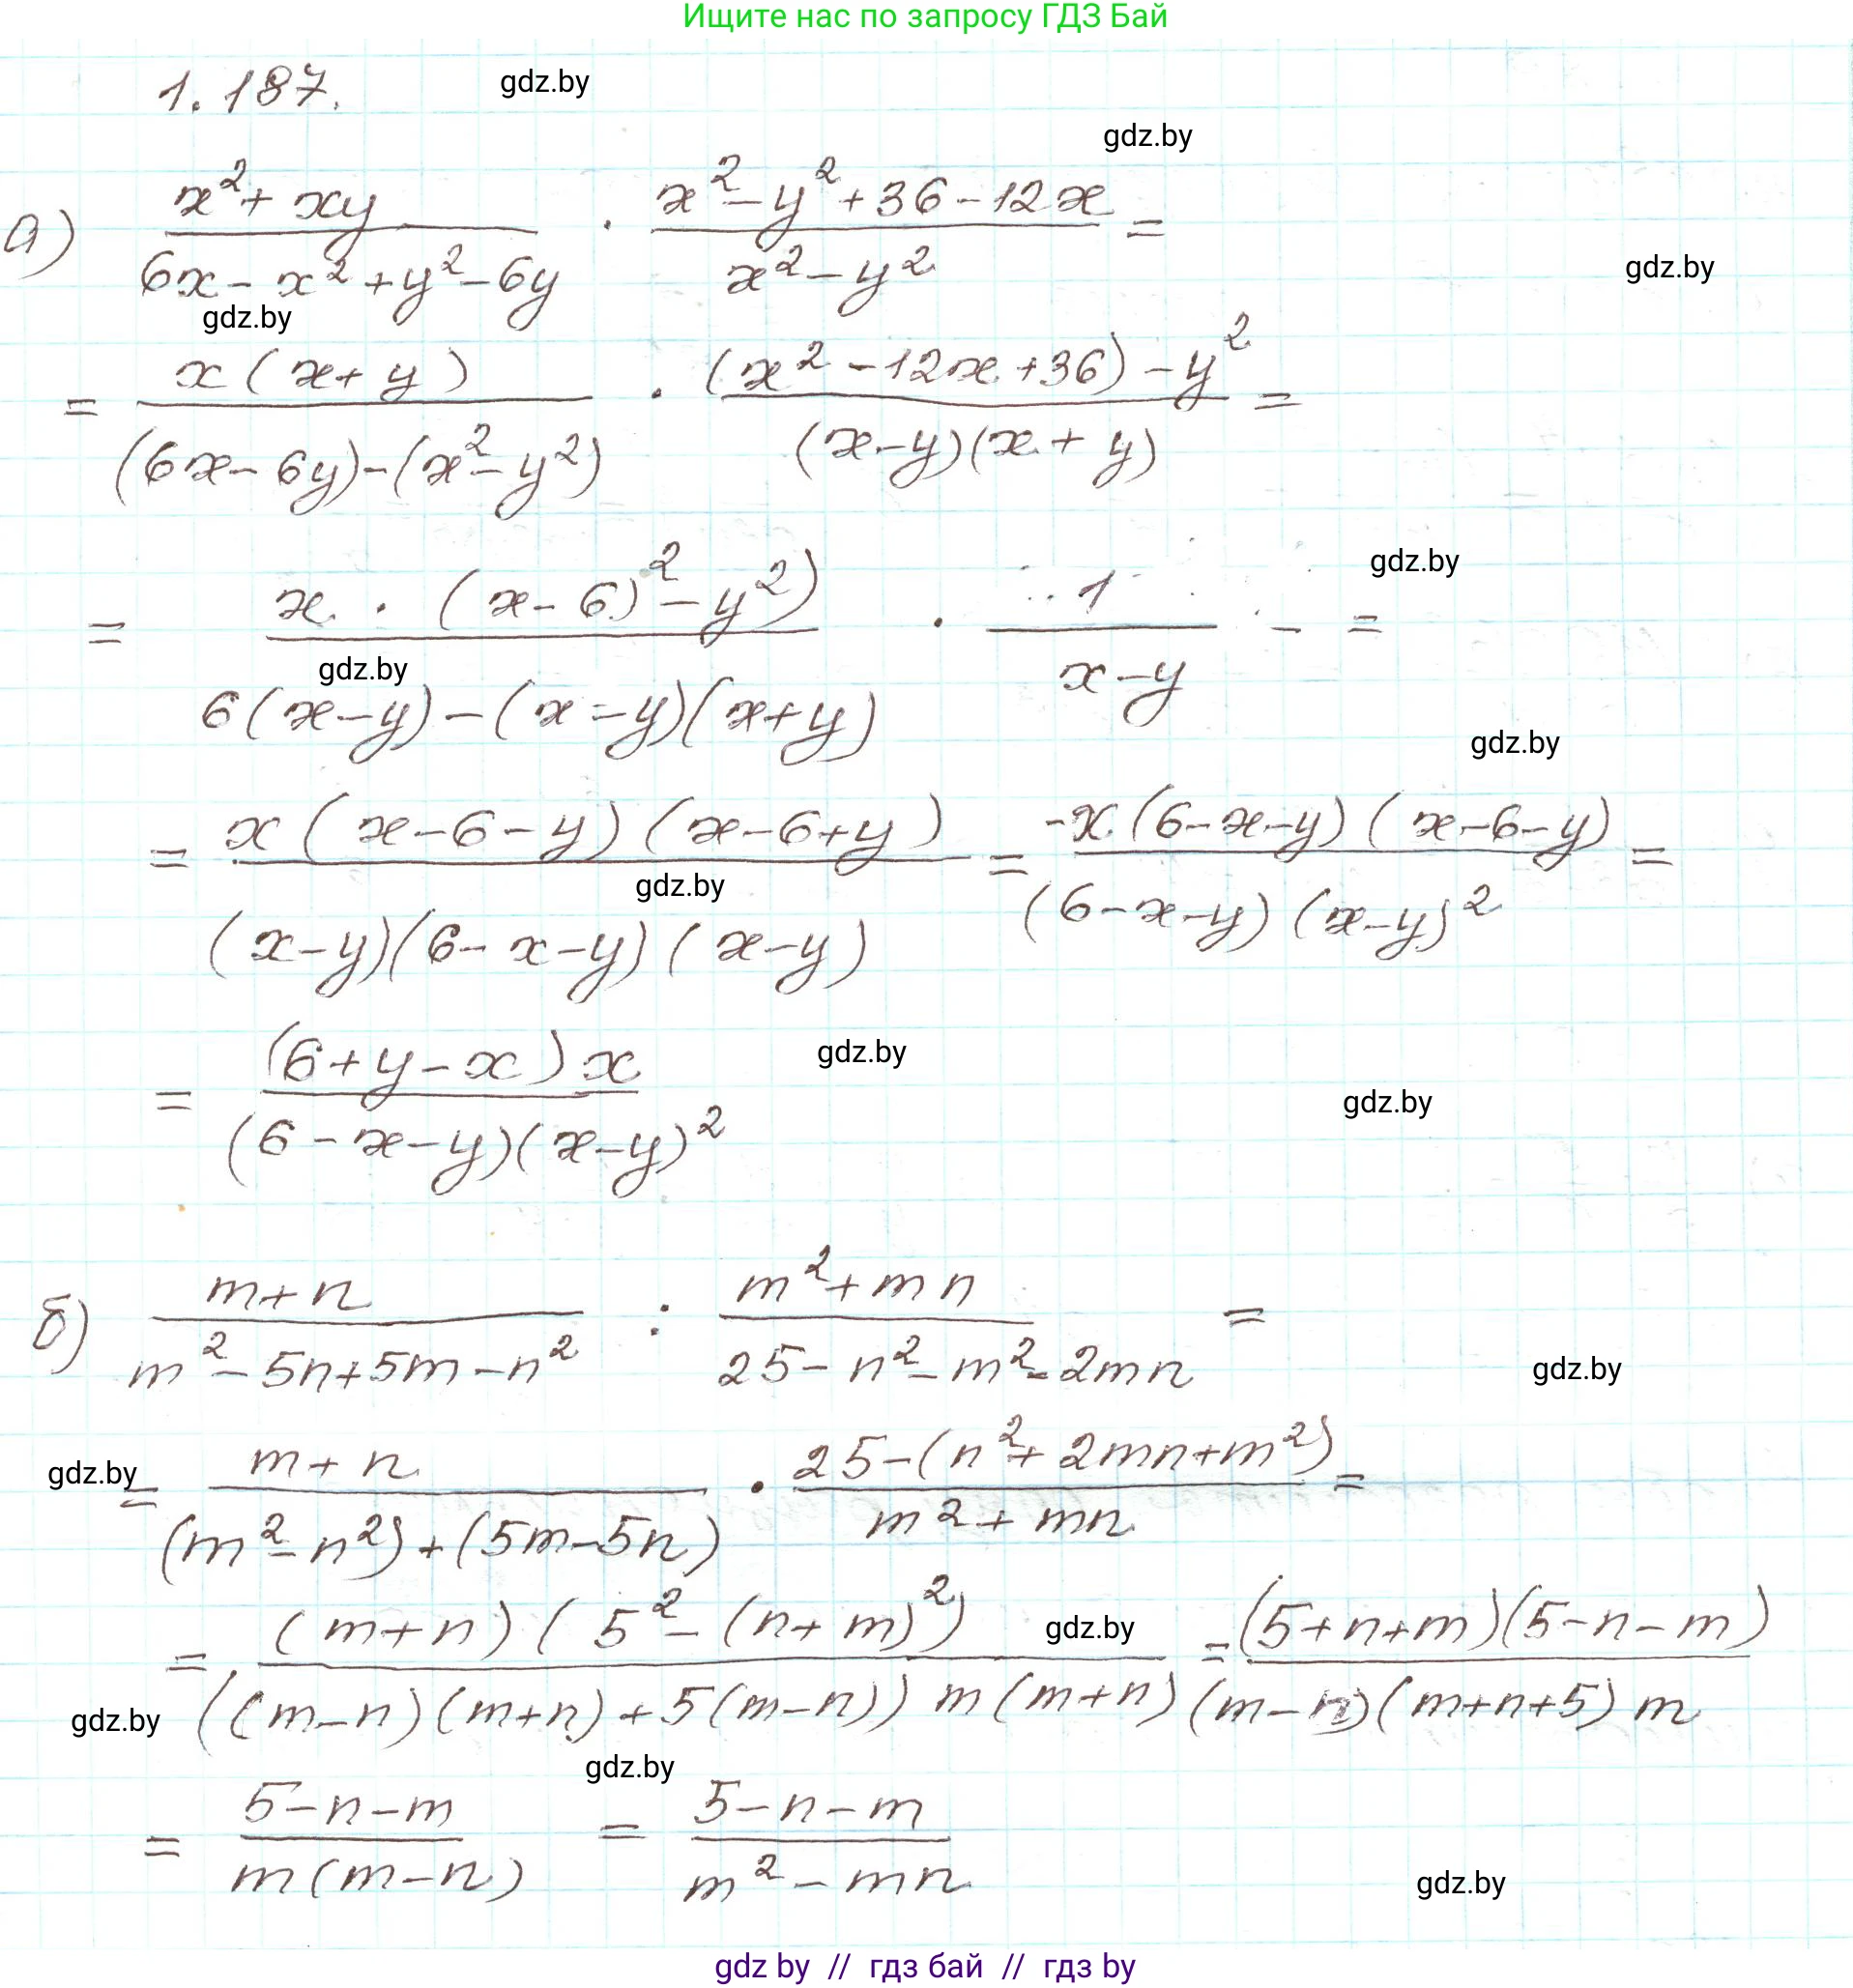 Ищите нас по запросу ГДЗ Бай
1.187. gdz.by
gdz.by
а) (x² + xy)/(6x - x² + y² - 6y) · (x² - y² + 36 - 12x)/(x² - y²) =
gdz.by
gdz.by
= (x(x + y))/((6x - 6y) - (x² - y²)) · ((x² - 12x + 36) - y²)/((x - y)(x + y)) =
gdz.by
= (x · (x - 6)² - y²))/(6(x - y) - (x - y)(x + y)) · 1/(x - y) =
gdz.by
gdz.by
= (x(x - 6 - y)(x - 6 + y))/((x - y)(6 - x - y)(x - y)) = (-x(6 - x - y)(x - 6 - y))/((6 - x - y)(x - y)²) =
gdz.by
= ((6 + y - x)x)/((6 - x - y)(x - y)²)
gdz.by
gdz.by
б) (m + n)/(m² - 5n + 5m - n²) : (m² + mn)/(25 - n² - m² - 2mn) =
gdz.by
gdz.by
= (m + n)/((m² - n²) + (5m - 5n)) · (25 - (n² + 2mn + m²))/(m² + mn) =
= ((m + n)(5² - (n + m)²))/(((m - n)(m + n) + 5(m - n)) m(m + n)) = ((5 + n + m)(5 - n - m))/((m - n)(m + n + 5)m)
gdz.by
gdz.by
gdz.by
= (5 - n - m)/(m(m - n)) = (5 - n - m)/(m² - mn)
gdz.by
gdz by // гдз бай // гдз by